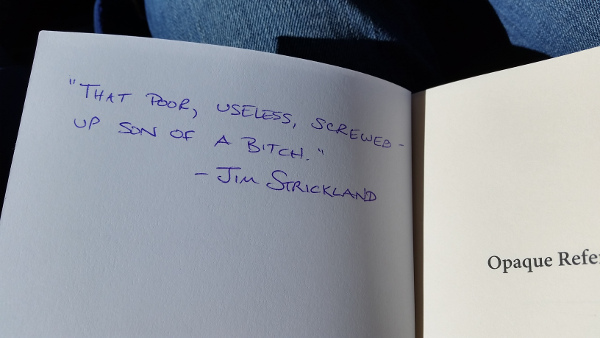 "THAT POOR, USELESS, SCREWED-
UP SON OF A BITCH."
- JIM STRICKLAND
Opaque Refe